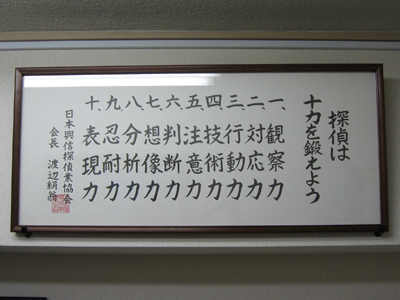 探偵は
十力を鍛えよう
一、観察力
二、対応力
三、行動力
四、技術力
五、注意力
六、判断力
七、想像力
八、分析力
九、忍耐力
十、表現力
日本興信探偵業協会
会長 渡辺絹翁